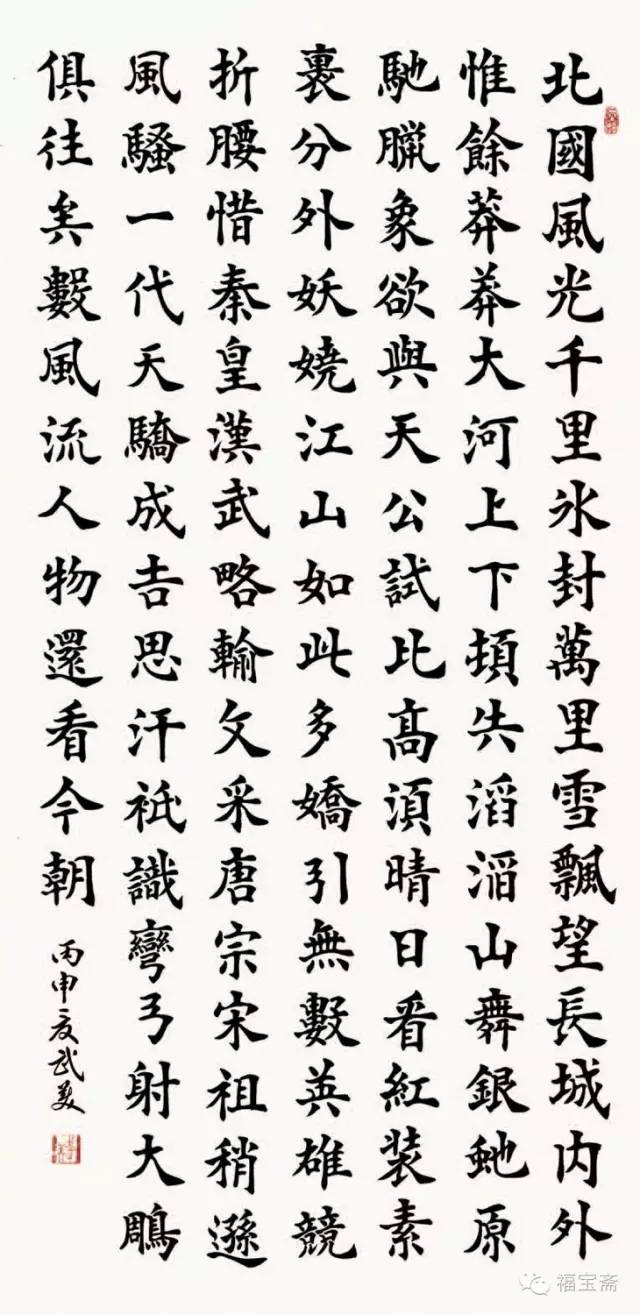 北國風光千里氷封萬里雪飄望長城内外
惟餘莽莽大河上下頓失滔滔山舞銀虵原
馳臘象欲與天公試比高須晴日看紅装素
裹分外妖嬈江山如此多嬌引無數英雄競
折腰惜秦皇漢武略輸文采唐宗宋祖稍遜
風騷一代天驕成吉思汗衹識彎弓射大鵰
俱往矣數風流人物還看今朝
丙申夏武美
福宝斋